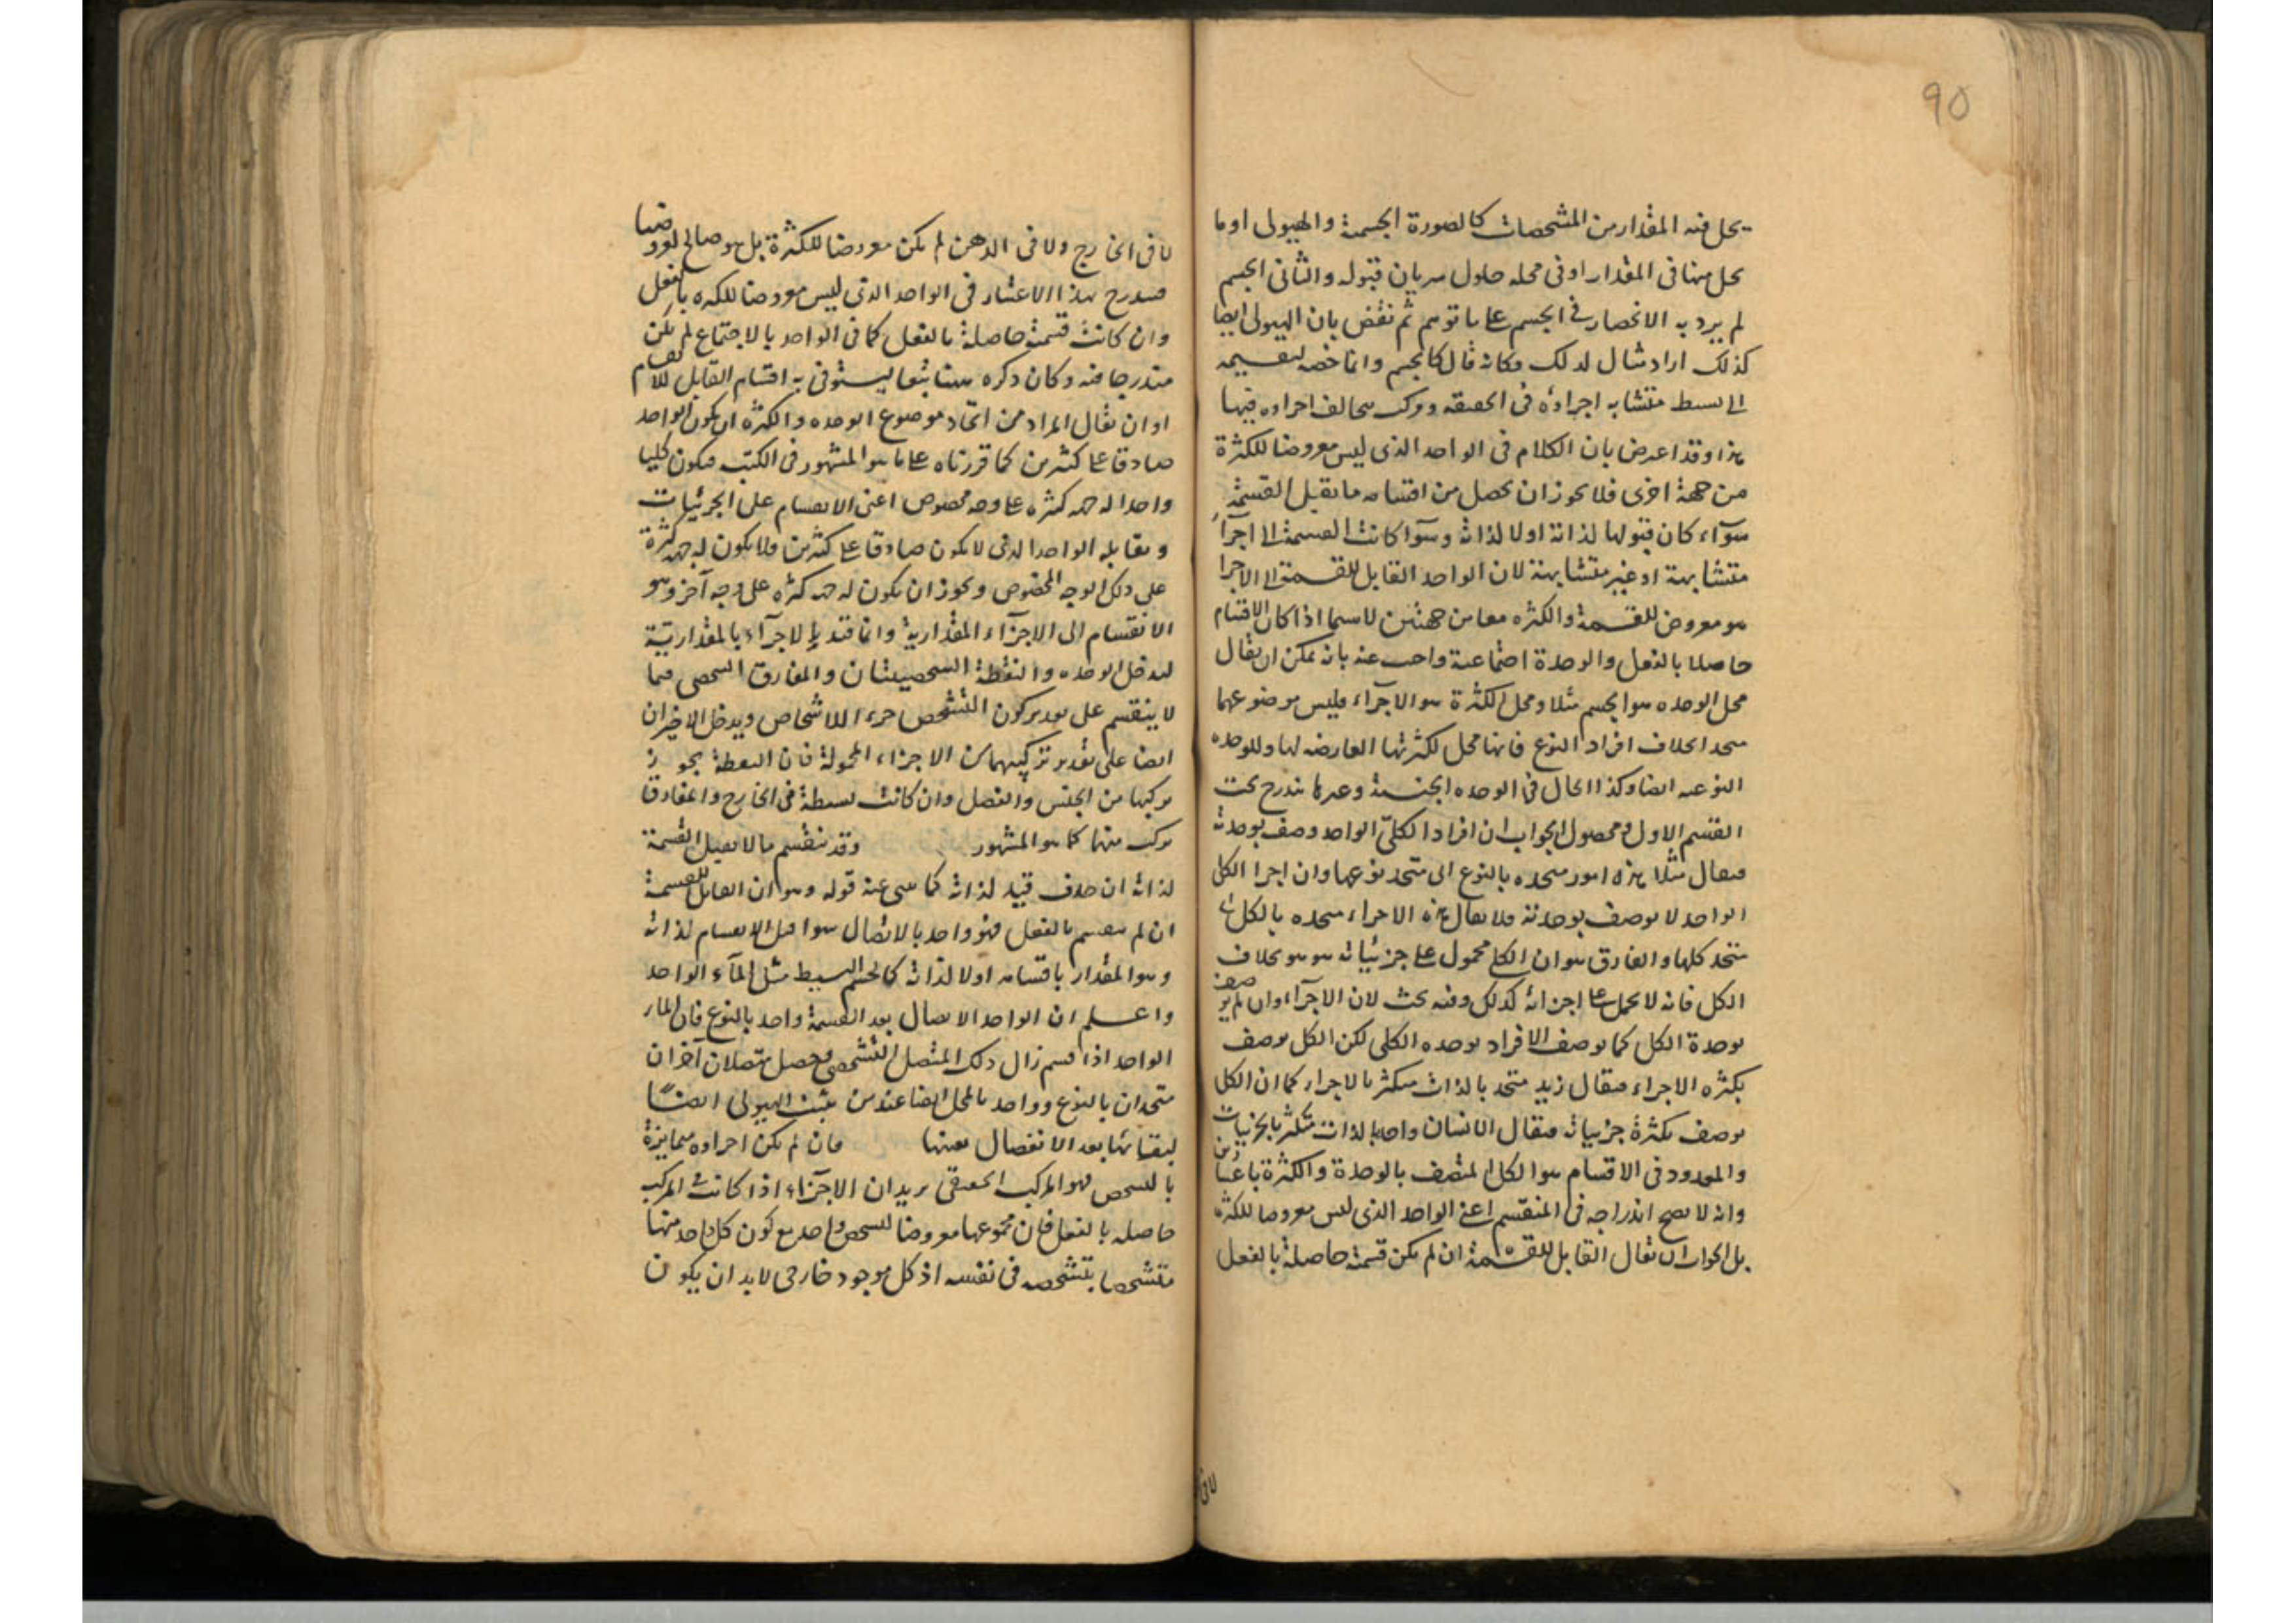 90
يحل فيه المقدار من المشخصات كالصورة الجسمية والهيولى او ما
يحل منها فى المقدار او فى محله حلول سريان قبوله والثانى الجسم
لم يرد به الانحصار فى الجسم على ما توهم ثم نقض بان الهيولى ايضا
كذلك اراد مثال لذلك وكانه قال كالجسم وانما خصه لتقسيمه
الى بسيط متشابه اجزاؤه فى الحقيقة ومركب متخالف اجزاوه فيها
هذا وقد اعترض بان الكلام فى الواحد الذى ليس معروضا للكثرة
من جهة اخرى فلا يجوز ان يحصل من اقسامه ما يقبل القسمة
سوآء كان قبولها لذاته اولا لذاته وسوآ كانت القسمة الى اجزآء
متشابهة او غير متشابهة لان الواحد القابل للقسمة الى الاجزا
هو معروض للقسمة والكثره معا من جهتين لاسيما اذا كان الاقسام
حاصلا بالفعل والوحدة اجتماعية واجيب عنه بانه يمكن ان يقال
محل الوحده هو الجسم مثلا ومحل الكثرة هو الاجزآء فليس موضوعهما
متحدا بخلاف افراد النوع فانها محل لكثرتها العارضه لها وللوحده
النوعيه ايضا وكذا الحال فى الوحده الجنسية وغيرها يندرج تحت
القسم الاول ومحصول الجواب ان افراد الكلىّ الواحد وصف بوحدته
فيقال مثلا هذه امور متحده بالنوع اى متحد نوعها وان اجزا الكل
الواحد لا يوصف بوحدته فلا يقال هذه الاجزاء متحده بالكل اى
متحد كلها والفارق هو ان الكلى محمول على جزئياته هو هو بخلاف
الكل فانه لا يحمل على اجزائه كذلك وفيه بحث لان الاجزآء وان لم يوصف
بوحدة الكل كما يوصف الافراد بوحده الكلى لكن الكل يوصف
بكثره الاجزاء فيقال زيد متحد بالذات متكثر بالاجزاء كما ان الكلى
يوصف بكثرة جزئياته فيقال الانسان واحد بالذات متكثر بالجزئيات
والمعدود فى الاقسام هو الكل المتصف بالوحدة والكثرة باعتبارين
وانه لا يصح اندراجه فى المنقسم اعنى الواحد الذى ليس معروضا للكثره
بل الجواب ان يقال القابل للقسمة ان لم يكن قسمة حاصلة بالفعل
لا فى
لا فى الخارج ولا فى الذهن لم يكن معروضا للكثرة بل هو صالح لعروضها
فيندرج بهذا الاعتبار فى الواحد الذى ليس معروضا للكثره بالفعل
وان كانت قسمة حاصلة بالفعل كما فى الواحد بالاجتماع لم يكن
مندرجا فيه وكان ذكره هنا تبعا ليستوفى به اقسام القابل للانقسام
او ان يقال المراد من اتحاد موضوع الوحده والكثره ان يكون الواحد
صادقا على كثيرين كما قررناه على ما هو المشهور فى الكتب فيكون كليا
واحدا له جهة كثره على وجه مخصوص اعنى الانقسام على الجزئيات
ويقابله الواحد الذى لا يكون صادقا على كثيرين ولا يكون له جهة كثرة
على ذلك الوجه المخصوص ويجوز ان يكون له جهة كثره على وجه آخر وهو
الانقسام الى الاجزآء المقدارية وانما قيد الاجزآء بالمقدارية
ليدخل الوحده والنقطة الشخصيتان والمفارق الشخصى فيما
لا ينقسم على تقدير كون التشخص جزءا للاشخاص ويدخل الاخيران
ايضا على تقدير تركيبهما من الاجزاء المحمولة فان النقطة يجوز
تركبها من الجنس والفصل وان كانت بسيطة فى الخارج والمفارق
مركب منهما كما هو المشهور وقد ينقسم ما لا يقبل القسمة
لذاته ان حذف قيد لذاته كما ينبئ عنه قوله وهو ان القابل للقسمة
ان لم ينقسم بالفعل فهو واحد بالاتصال سوا قبل الانقسام لذاته
وهو المقدار باقسامه اولا لذاته كالجسم البسيط مثل المآء الواحد
واعلم ان الواحد بالاتصال بعد القسمة واحد بالنوع فان الماء
الواحد اذا قسم زال ذلك المتصل الشخصى وحصل متصلان آخران
متحدان بالنوع وواحد بالمحل ايضا عند من يثبت الهيولى ايضًا
لبقائها بعد الانفصال بعينها فان لم يكن اجزاوه متمايزة
بالتشخص فهو المركب الحقيقى يريد ان الاجزآء اذا كانت فى المركب
حاصله بالفعل فان مجموعها معروضا لتشخص واحد مع كون كل واحد منها
متشخصا بتشخصه فى نفسه اذ كل موجود خارجى لا بد ان يكون